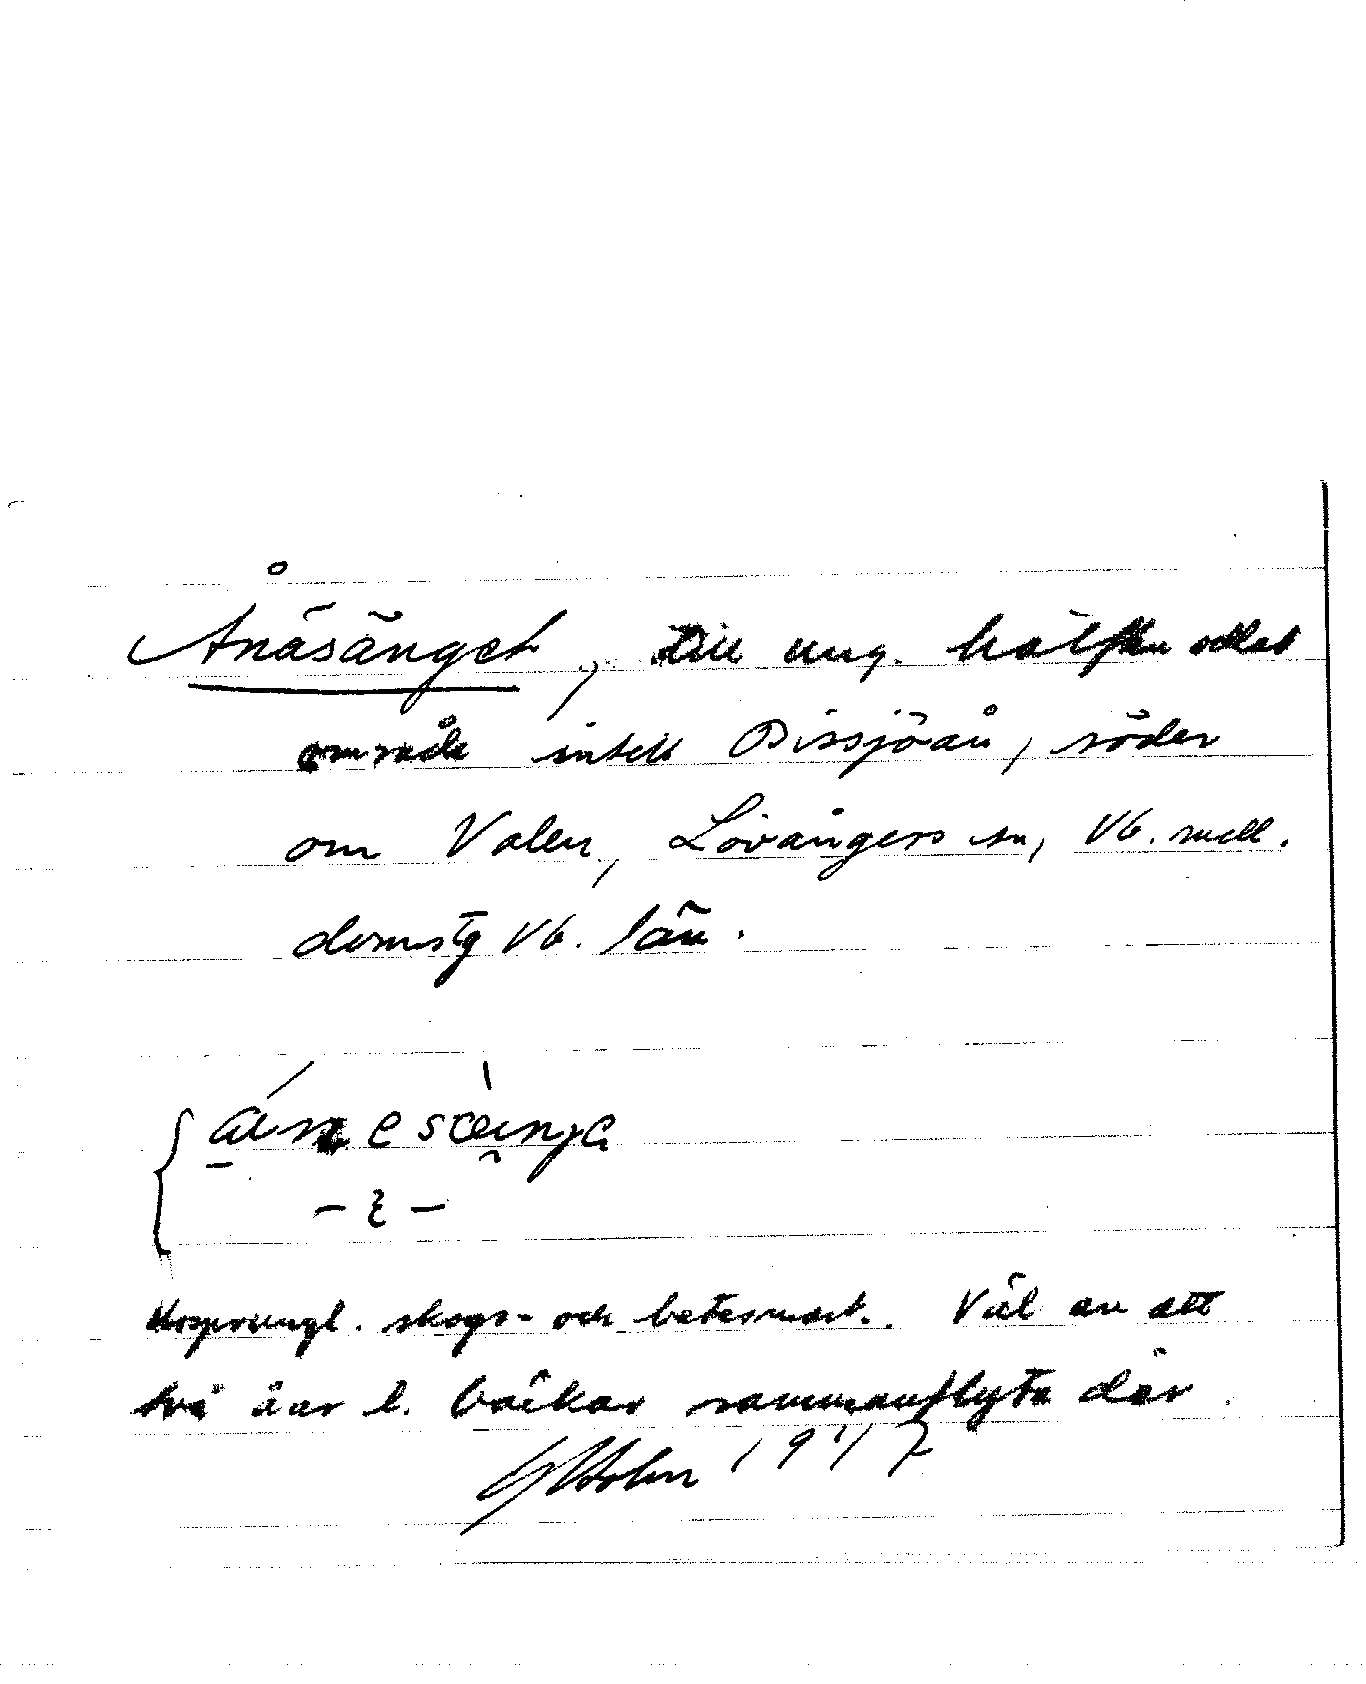 Ånäsänget, till ung. hälften odlat
område intill Bissjöån, söder
om Valen, Lövångers sn, Vb. mell.
domstg Vb. län.
-ε-
Ursprungl. skogs- och betesmark. Väl av att
två åar l. bäckar sammanflyta där.
1917